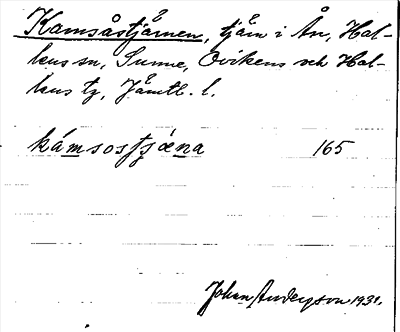 Kamsåstjärnen, tjärn i Ån, Hal-
lens sn, Sunne, Ovikens och Hal-
lens tg, Jämtl. l.
kámsostjæna 165
Johan Anderzson 1931.